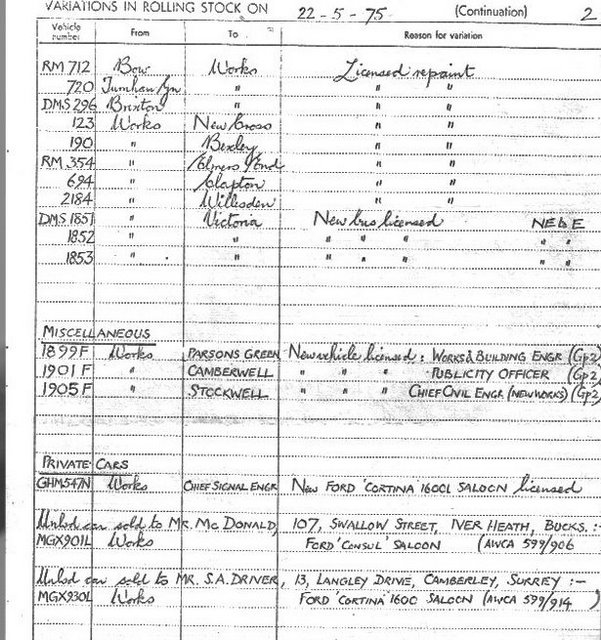 VARIATIONS IN ROLLING STOCK ON 22-5-75 (Continuation) 2
Vehicle number From To Reason for variation
RM 712 Bow Works Licensed repaint
720 Turnham Gn " " "
DMS 296 Brixton " " "
123 Works New Cross " "
190 " Bexley " "
RM 354 " Elmers End " "
694 " Clapton " "
2184 " Willesden " "
DMS 1851 " Victoria New bus licensed NEBE
1852 " " " " " " "
1853 " " " " " " "
MISCELLANEOUS
1899F Works PARSONS GREEN New vehicle licensed : WORKS & BUILDING ENGR (Gp2)
1901F " CAMBERWELL " " " PUBLICITY OFFICER (Gp2)
1905F " STOCKWELL " " " CHIEF CIVIL ENGR (NEW WORKS) (Gp2)
PRIVATE CARS
GHM547N Works CHIEF SIGNAL ENGR New FORD 'CORTINA' 1600L SALOON licensed
Unlsd car sold to MR. MC DONALD, 107, SWALLOW STREET, IVER HEATH, BUCKS. :-
MGX901L Works FORD 'CONSUL' SALOON (AWCA 599/906
Unlsd car sold to MR. S.A. DRIVER, 13, LANGLEY DRIVE, CAMBERLEY, SURREY :-
MGX930L Works FORD 'CORTINA' 1600 SALOON (AWCA 599/914 )